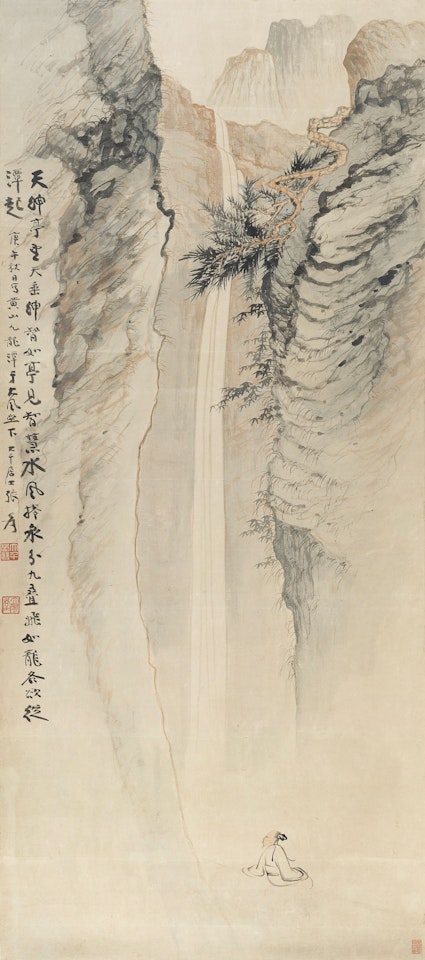 天紳亭望天垂紳智如亭見智慧水風捲泉分九疊飛如龍各欲從
潭起 庚午秋日寫黃山九龍潭 大風堂下 大千居士張爰